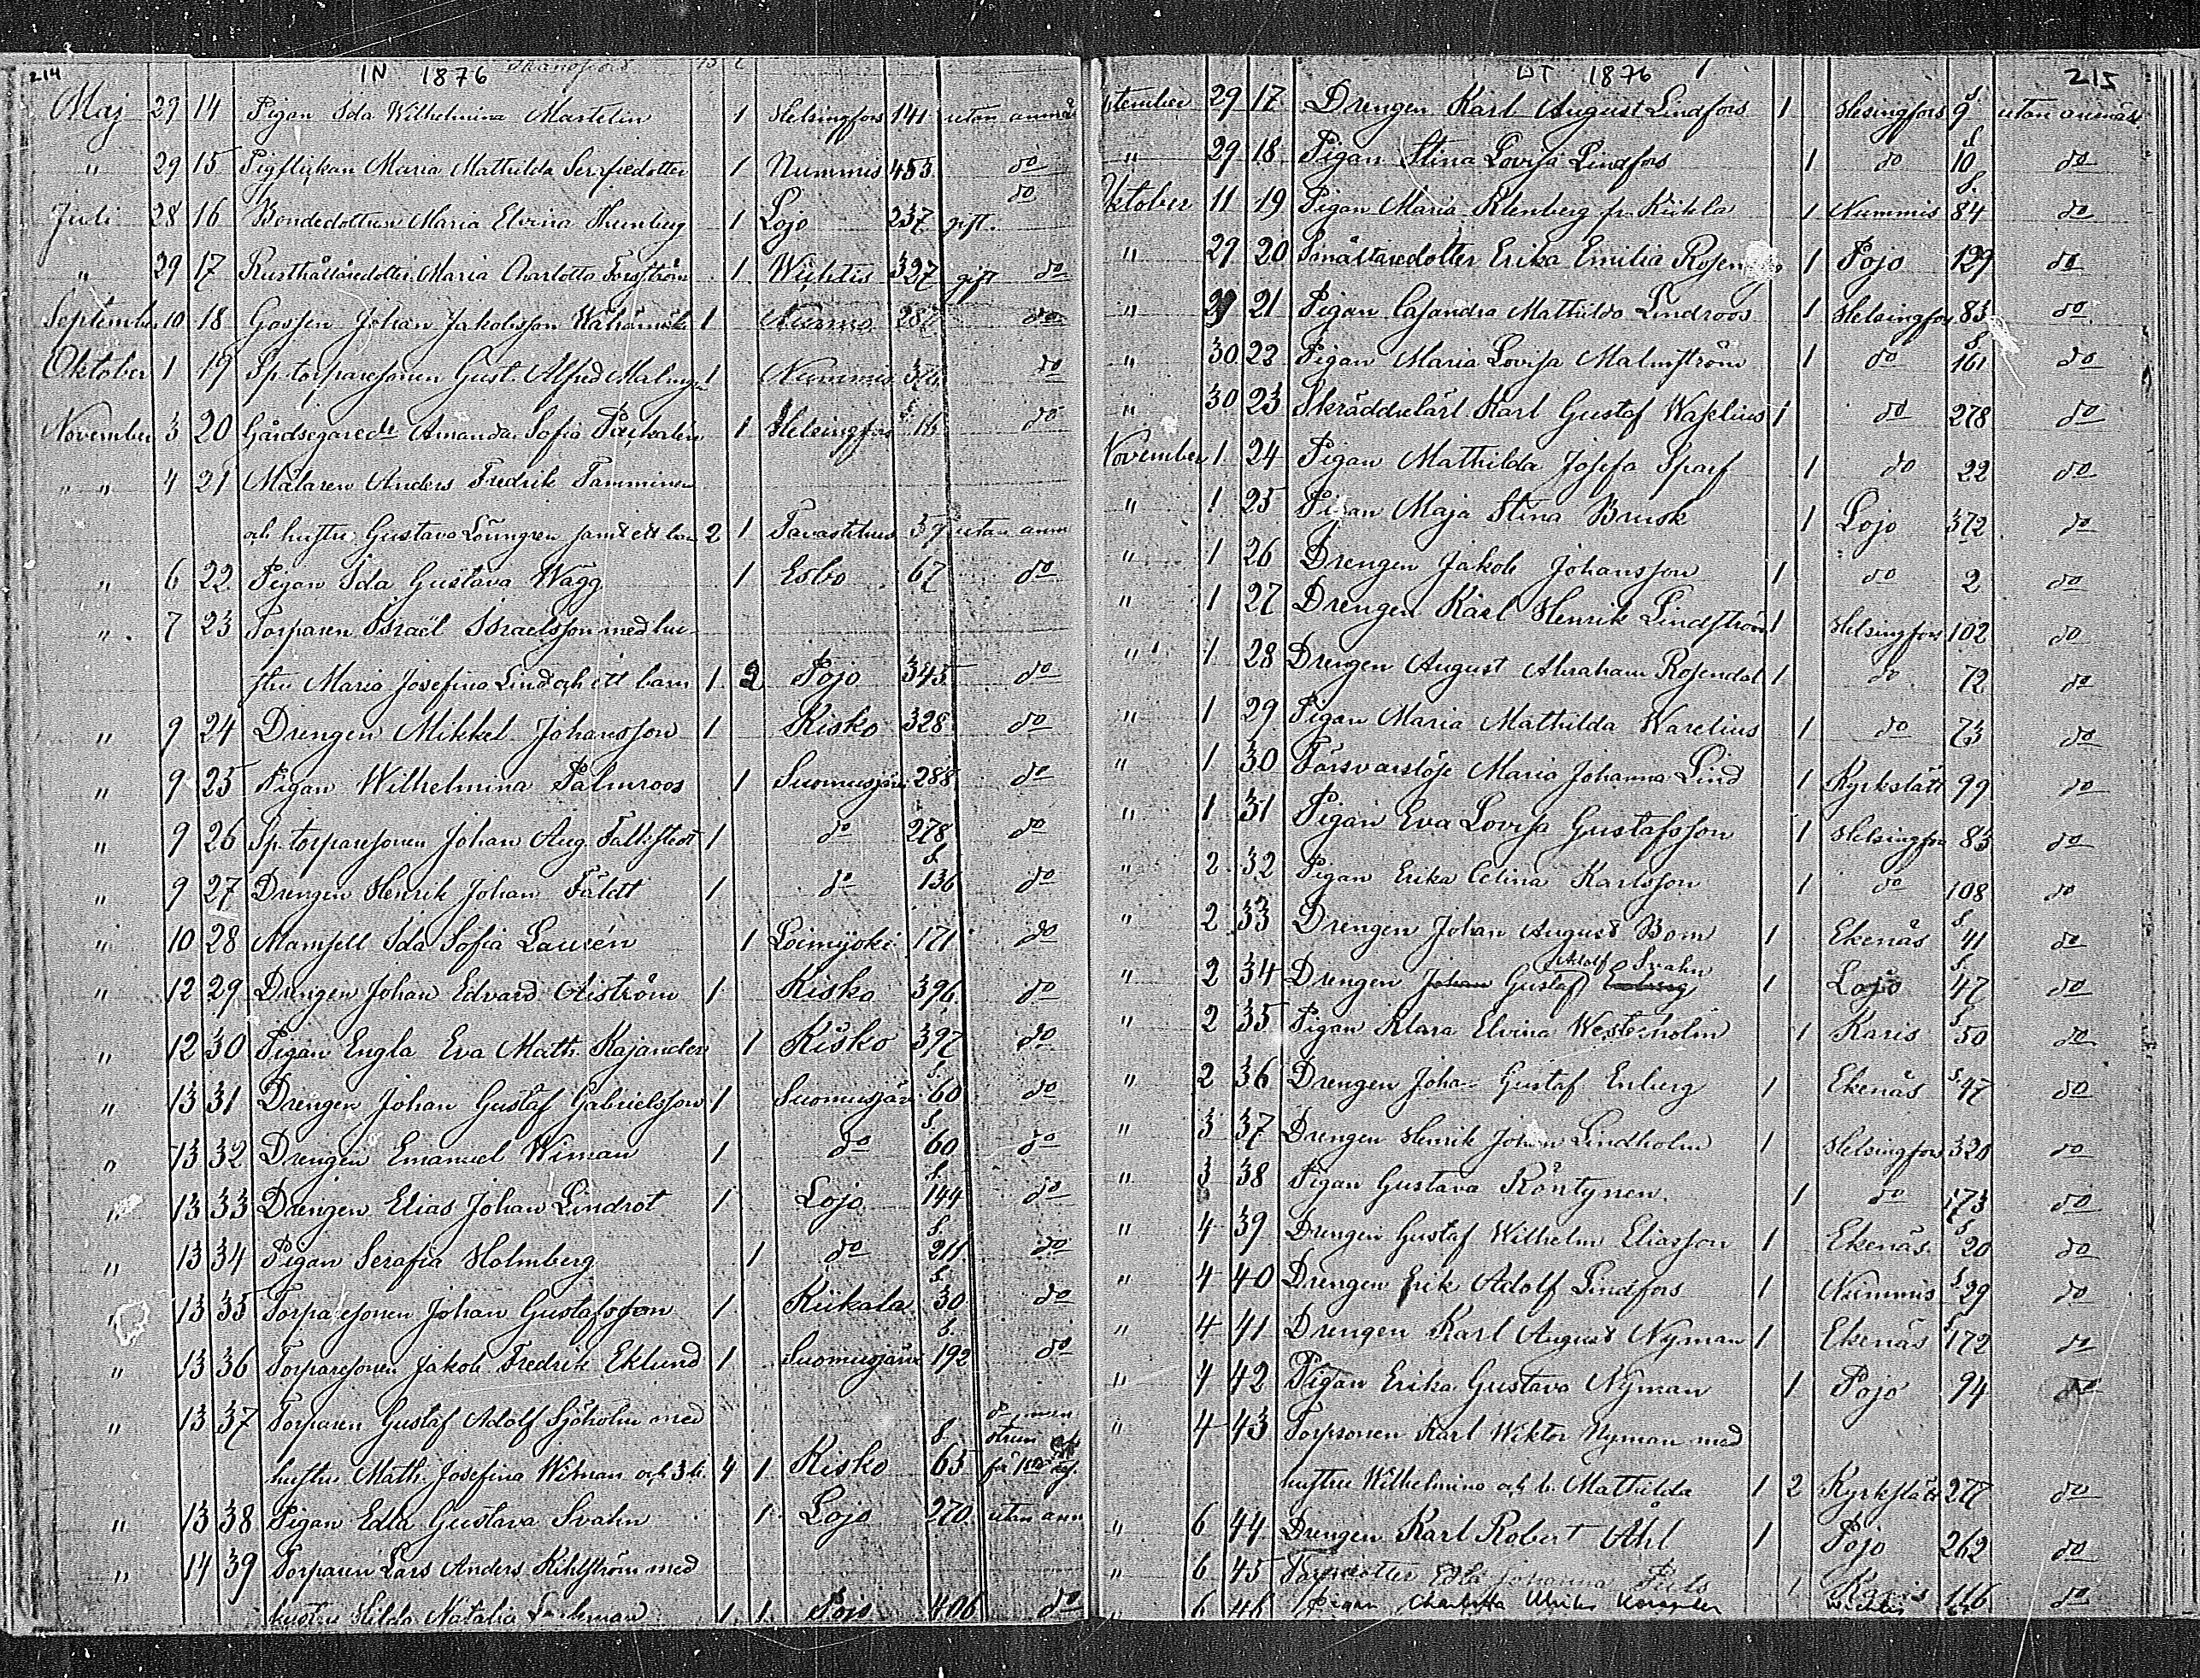 214 IN 1876
Maj 29 14 Pigan Ida Wilhelmina Martelin 1 Helsingfors 141 utan anmä
" 29 15 Pigflickan Maria Mathilda Serafiedotter 1 Nummis 453 do
do
Juli 28 16 Bondedottren Maria Elvina Thunberg 1 Lojo 237 gift.
" 29 17 Rusthållaredotter Maria Charlotta Forsström 1 Wichtis 327 gift do
September 10 18 Gossen Johan Jakobsson 1 do
Oktober 1 19 Sp. torparesonen Gust. Alfred 1 Nummis do
November 3 20 Gårdsegaredt Amanda Sofia 1 Helsingfors S. 16 do
" " 4 21 Målaren Anders Fredrik Tamminen
och hustru Gustava Löungren samt ett barn 2 1 Tavastehus 37 utan anm
" 6 22 Pigan Ida Gustava Wagg 1 Esbo 67 do
" 7 23 Torparen Israel Israelsson med hu-
stru Maria Josefina Lind och ett barn 1 2 Pojo 345 do
" 9 24 Drengen Mikkel Johansson 1 Kisko 328 do
" 9 25 Pigan Wilhelmina Palmroos 1 Suomusjärvi 288 do
" 9 26 Sp. torparesonen Johan Aug. Fallstedt 1 do 278 do
" 9 27 Drengen Henrik Johan Fäldt 1 do S. 136 do
" 10 28 Mamsell Ida Sofia Laurén 1 Loimijoki 171 do
" 12 29 Drengen Johan Edvard Åström 1 Kisko 396 do
" 12 30 Pigan Engla Eva Math. Kajander 1 Kisko 397 do
" 13 31 Drengen Johan Gustaf Gabrielsson 1 Suomusjär S. 60 do
" 13 32 Drengen Emanuel Wiman 1 do S. 60 do
" 13 33 Drengen Elias Johan Lindrot 1 Lojo S. 144 do
" 13 34 Pigan Serafia Holmberg 1 do S. 211 do
" 13 35 Torparesonen Johan Gustafsson 1 Kiikala S. 30 do
" 13 36 Torparesonen Jakob Fredrik Eklund 1 Suomusjärvi S. 192 do
" 13 37 Torparen Gustaf Adolf Sjöholm med do men
hustru Math. Josefina Wiman och 3 b. 4 1 Kisko S. 65
" 13 38 Pigan Edla Gustava Svahn 1 Lojo 270 utan anm
" 14 39 Torparen Lars Anders Kihlström med
hustru Hilda Natalia 1 1 Pojo 406 do
UT 1876 215
tember 29 17 Drengen Karl August Lindfors 1 Helsingfors S. 9 utan
" 29 18 Pigan Stina Lovisa Lindfors 1 do S. 10 do
Oktober 11 19 Pigan Maria Klenberg fr. Kiikla 1 Nummis S. 84 do
" 29 20 Smältaredotter Erika Emilia 1 Pojo 129 do
" 29 21 Pigan Casandra Mathilda Lindroos 1 Helsingfors 83 do
" 30 22 Pigan Maria Lovisa Malmström 1 do S. 161 do
" 30 23 Skräddrelärl Karl Gustaf Waselius 1 do 278 do
November 1 24 Pigan Mathilda Josefa Sparf 1 do 22 do
" 1 25 Pigan Maja Stina Brusk 1 Lojo 372 do
" 1 26 Drengen Jakob Johansson 1 do 2 do
" 1 27 Drengen Karl Henrik Lindström 1 Helsingfors 102 do
" 1 28 Drengen August Abraham Rosendal 1 do 72 do
" 1 29 Pigan Maria Mathilda Warelius 1 do 73 do
" 1 30 Försvarslöse Maria Johanna Lind 1 Kyrkslätt 99 do
" 1 31 Pigan Eva Lovisa Gustafsson 1 Helsingfors 83 do
" 2 32 Pigan Erika Celina Karlsson 1 do 108 do
" 2 33 Drengen Johan August Bom 1 Ekenäs S. 41 do
Adolf Svahn
" 2 34 Drengen Johan Gustaf Enberg 1 Lojo S. 47 do
" 2 35 Pigan Klara Elvina Westerholm 1 Karis S. 50 do
" 2 36 Drengen Johan Gustaf Enberg 1 Ekenäs S. 47 do
" 3 37 Drengen Henrik Johan Lindholm 1 Helsingfors 320 do
" 3 38 Pigan Gustava Röntynen 1 do 173 do
" 4 39 Drengen Gustaf Wilhelm Eliasson 1 Ekenäs S. 20 do
" 4 40 Drengen Erik Adolf Lindfors 1 Nummis S. 29 do
" 4 41 Drengen Karl August Nyman 1 Ekenäs S. 172 do
" 4 42 Pigan Erika Gustava Nyman 1 Pojo 94 do
" 4 43 Torpsonen Karl Wiktor Nyman med
hustru Wilhelmina och b. Mathilda 1 2 Kyrkslätt 277 do
" 6 44 Drengen Karl Robert Åhl 1 Pojo 262 do
" 6 45 Edla Johanna 1 Karis 116 do
" 6 46 Pigan Charlotta Ulrika Wichtis do